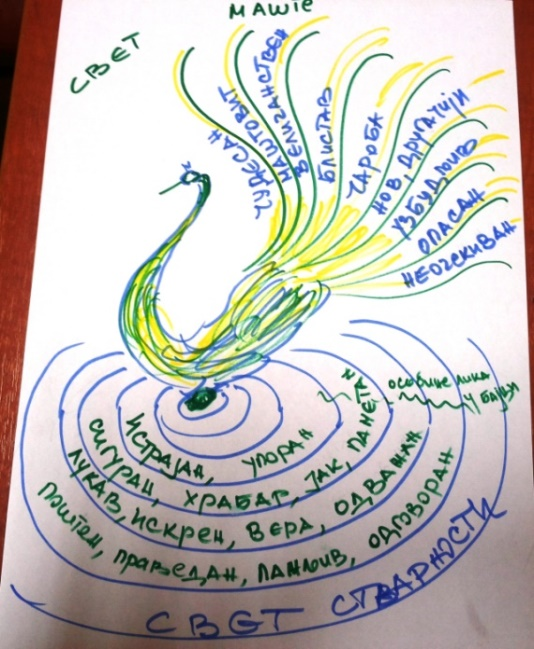 СВЕТ
МАШТЕ
ЧУДЕСАН
МАШТОВИТ
ВЕЛИЧАНСТВЕН
БЛИСТАВ
ЧАРОБА
НОВ, ДРУГАЧИЈИ
УЗБУДЉИВО
ОПАСАН
НЕОЧЕКИВАН
ОСОБИНЕ ЛИКА
У БАЈЦИ
ИСТРАЈАН, УПОРАН
СИГУРАН, ХРАБАР, ЈАК, ПАМЕТАН
ЛУКАВ, ИСКРЕН, ВЕРА, ОДВАЖАН
ПОШТЕН, ПРАВЕДАН, ПАЖЉИВ, ОДГОВОРАН
СВЕТ СТВАРНОСТИ